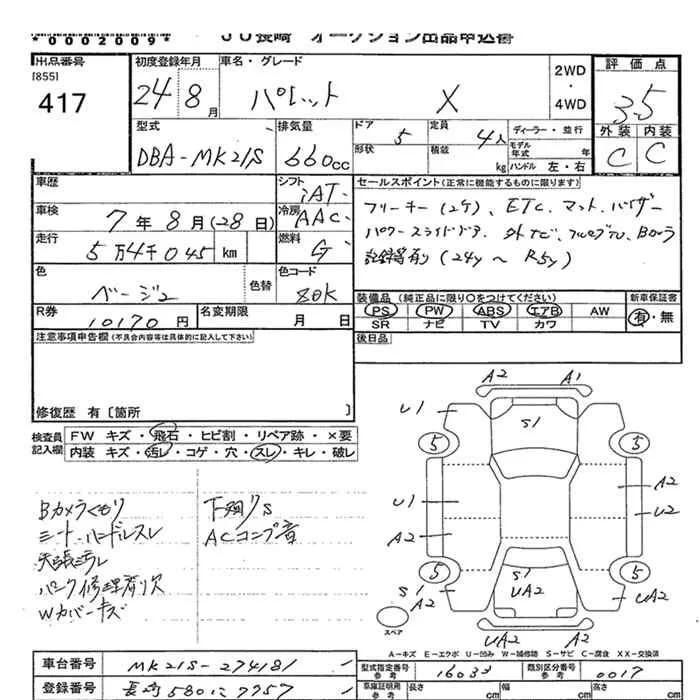 *0002009*
JU長崎 オークション出品申込書
出品番号
[855]
417
初度登録年月
24年8月
車名・グレード
パレット X
2WD
・
4WD
評価点
3.5
外装 内装
C C
型式
DBA-MK21S
排気量
660cc
ドア 5
形状
定員 4人
積載 kg
ディーラー・並行
モデル年式 年
ハンドル 左・右
車歴
シフト iAT
車検 7年8月(28日)
冷房 AAC
走行 5万4千045 km
燃料 G
セールスポイント(正常に機能するものに限ります)
フリーキー(2ケ)、ETC、マット、バイザー
パワースライドドア、外ナビ、フルセグTV、Bカメラ
記録簿有り(24y〜R5y)
色 ベージュ
色替
色コード 80K
R券 10170円
名変期限 月 日
装備品(純正品に限り〇をつけてください)
PS PW ABS エアB AW
SR ナビ TV カワ
新車保証書
有・無
注意事項申告欄(不具合内容等は具体的に記入して下さい)
後日品
修復歴 有〔箇所 〕
検査員記入欄
FW キズ・飛石・ヒビ割・リペア跡・×要
内装 キズ・汚レ・コゲ・穴・スレ・キレ・破レ
Bカメラくもり
シート・ハンドルスレ
天張汚レ
バンク修理有り欠
Wカバーキズ
下廻りS
ACコンプ音
A2 A1
U1 S1
5 5
U1 A2
A2 U2
5 5
S1 A2 S1 UA2 UA2
UA2 A2
スペア
A-キズ E-エクボ U-凹み W-補修跡 S-サビ C-腐食 XX-交換済
車台番号 MK21S-274181
登録番号 長崎580に7757
型式指定番号 参考 16033
類別区分番号 参考 0017
車庫証明用 参考
長さ cm
幅 cm
高さ cm